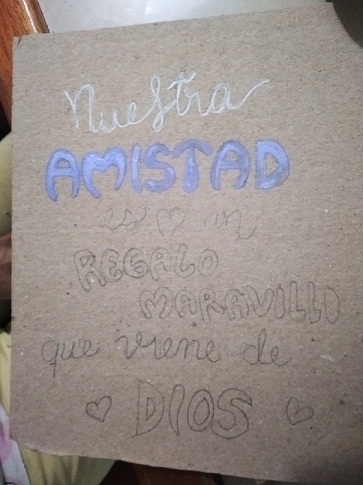 Nuestra
AMISTAD
es un
REGALO
MARAVILLO
que viene de
DIOS